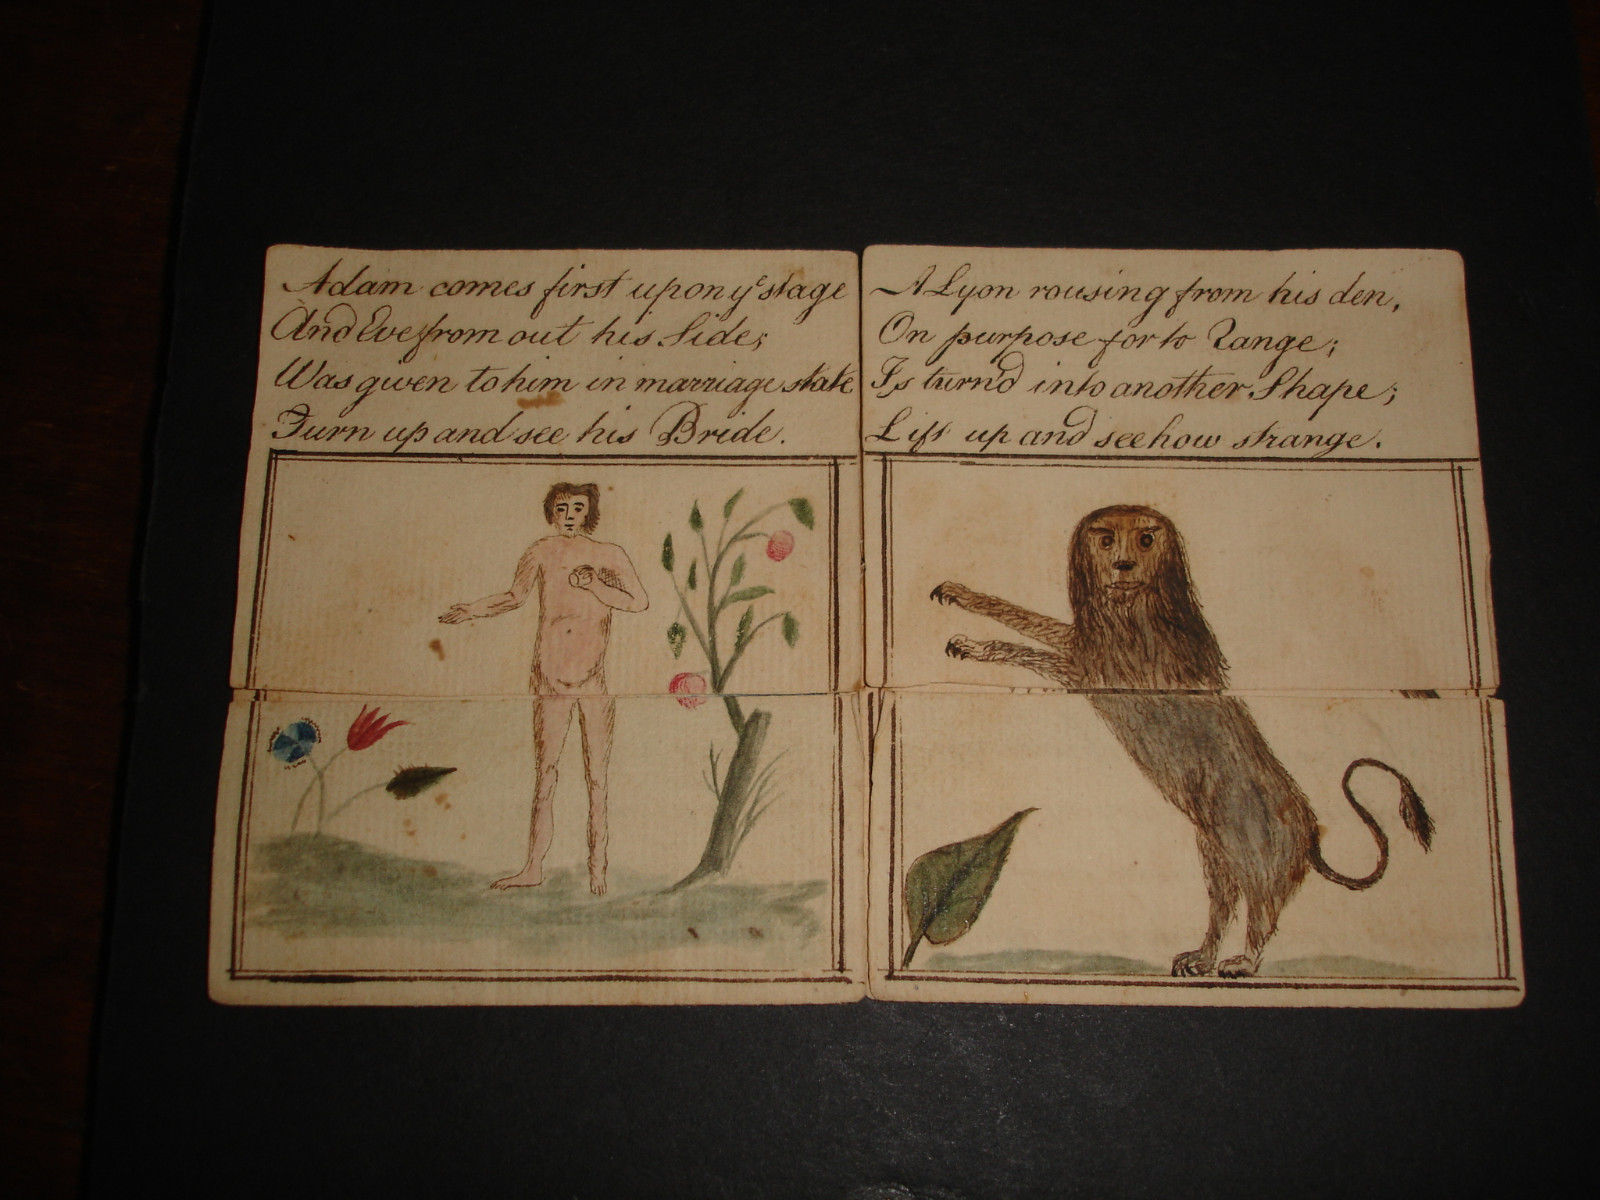 Adam comes first upon yͤ stage
And Eve from out his Side;
Was given to him in marriage state
Turn up and see his Bride.
A Lyon rousing from his den,
On purpose for to Range;
Is turn'd into another Shape;
Lift up and see how strange.